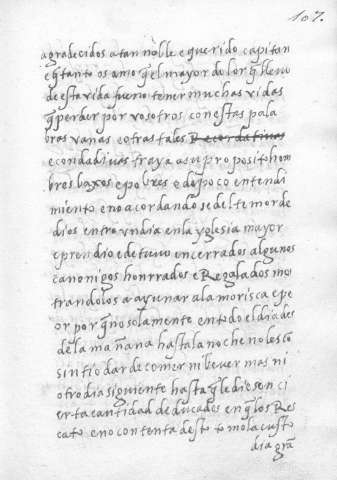 107.
agradecidos a tan noble e querido capitan
q̃ tanto os amo q̃ el mayor dolor q̃ llevo
de esta vida fue no tener muchas vidas
q̃ perder por vosotros con estas pala
bras vanas e otras tales Recordativas
e con dadivas traya a su proposito hom
bres baxos e pobres e de poco entendi
miento e no acordandose del temor de
dios entro un dia en la yglesia mayor
e prendio e detuvo encerrados algunos
canonigos honrrados e Regalados mos
trandolos a ayunar a la morisca e pe
or por q̃ no solamente en todo el dia des
de la mañana hasta la noche no les co
sintio dar de comer ni bever mas ni
otro dia siguiente hasta q̃ le diesen ci
erta cantidad de ducados en q̃ los Res
cato e no contenta desto tomo la custo
dia grã